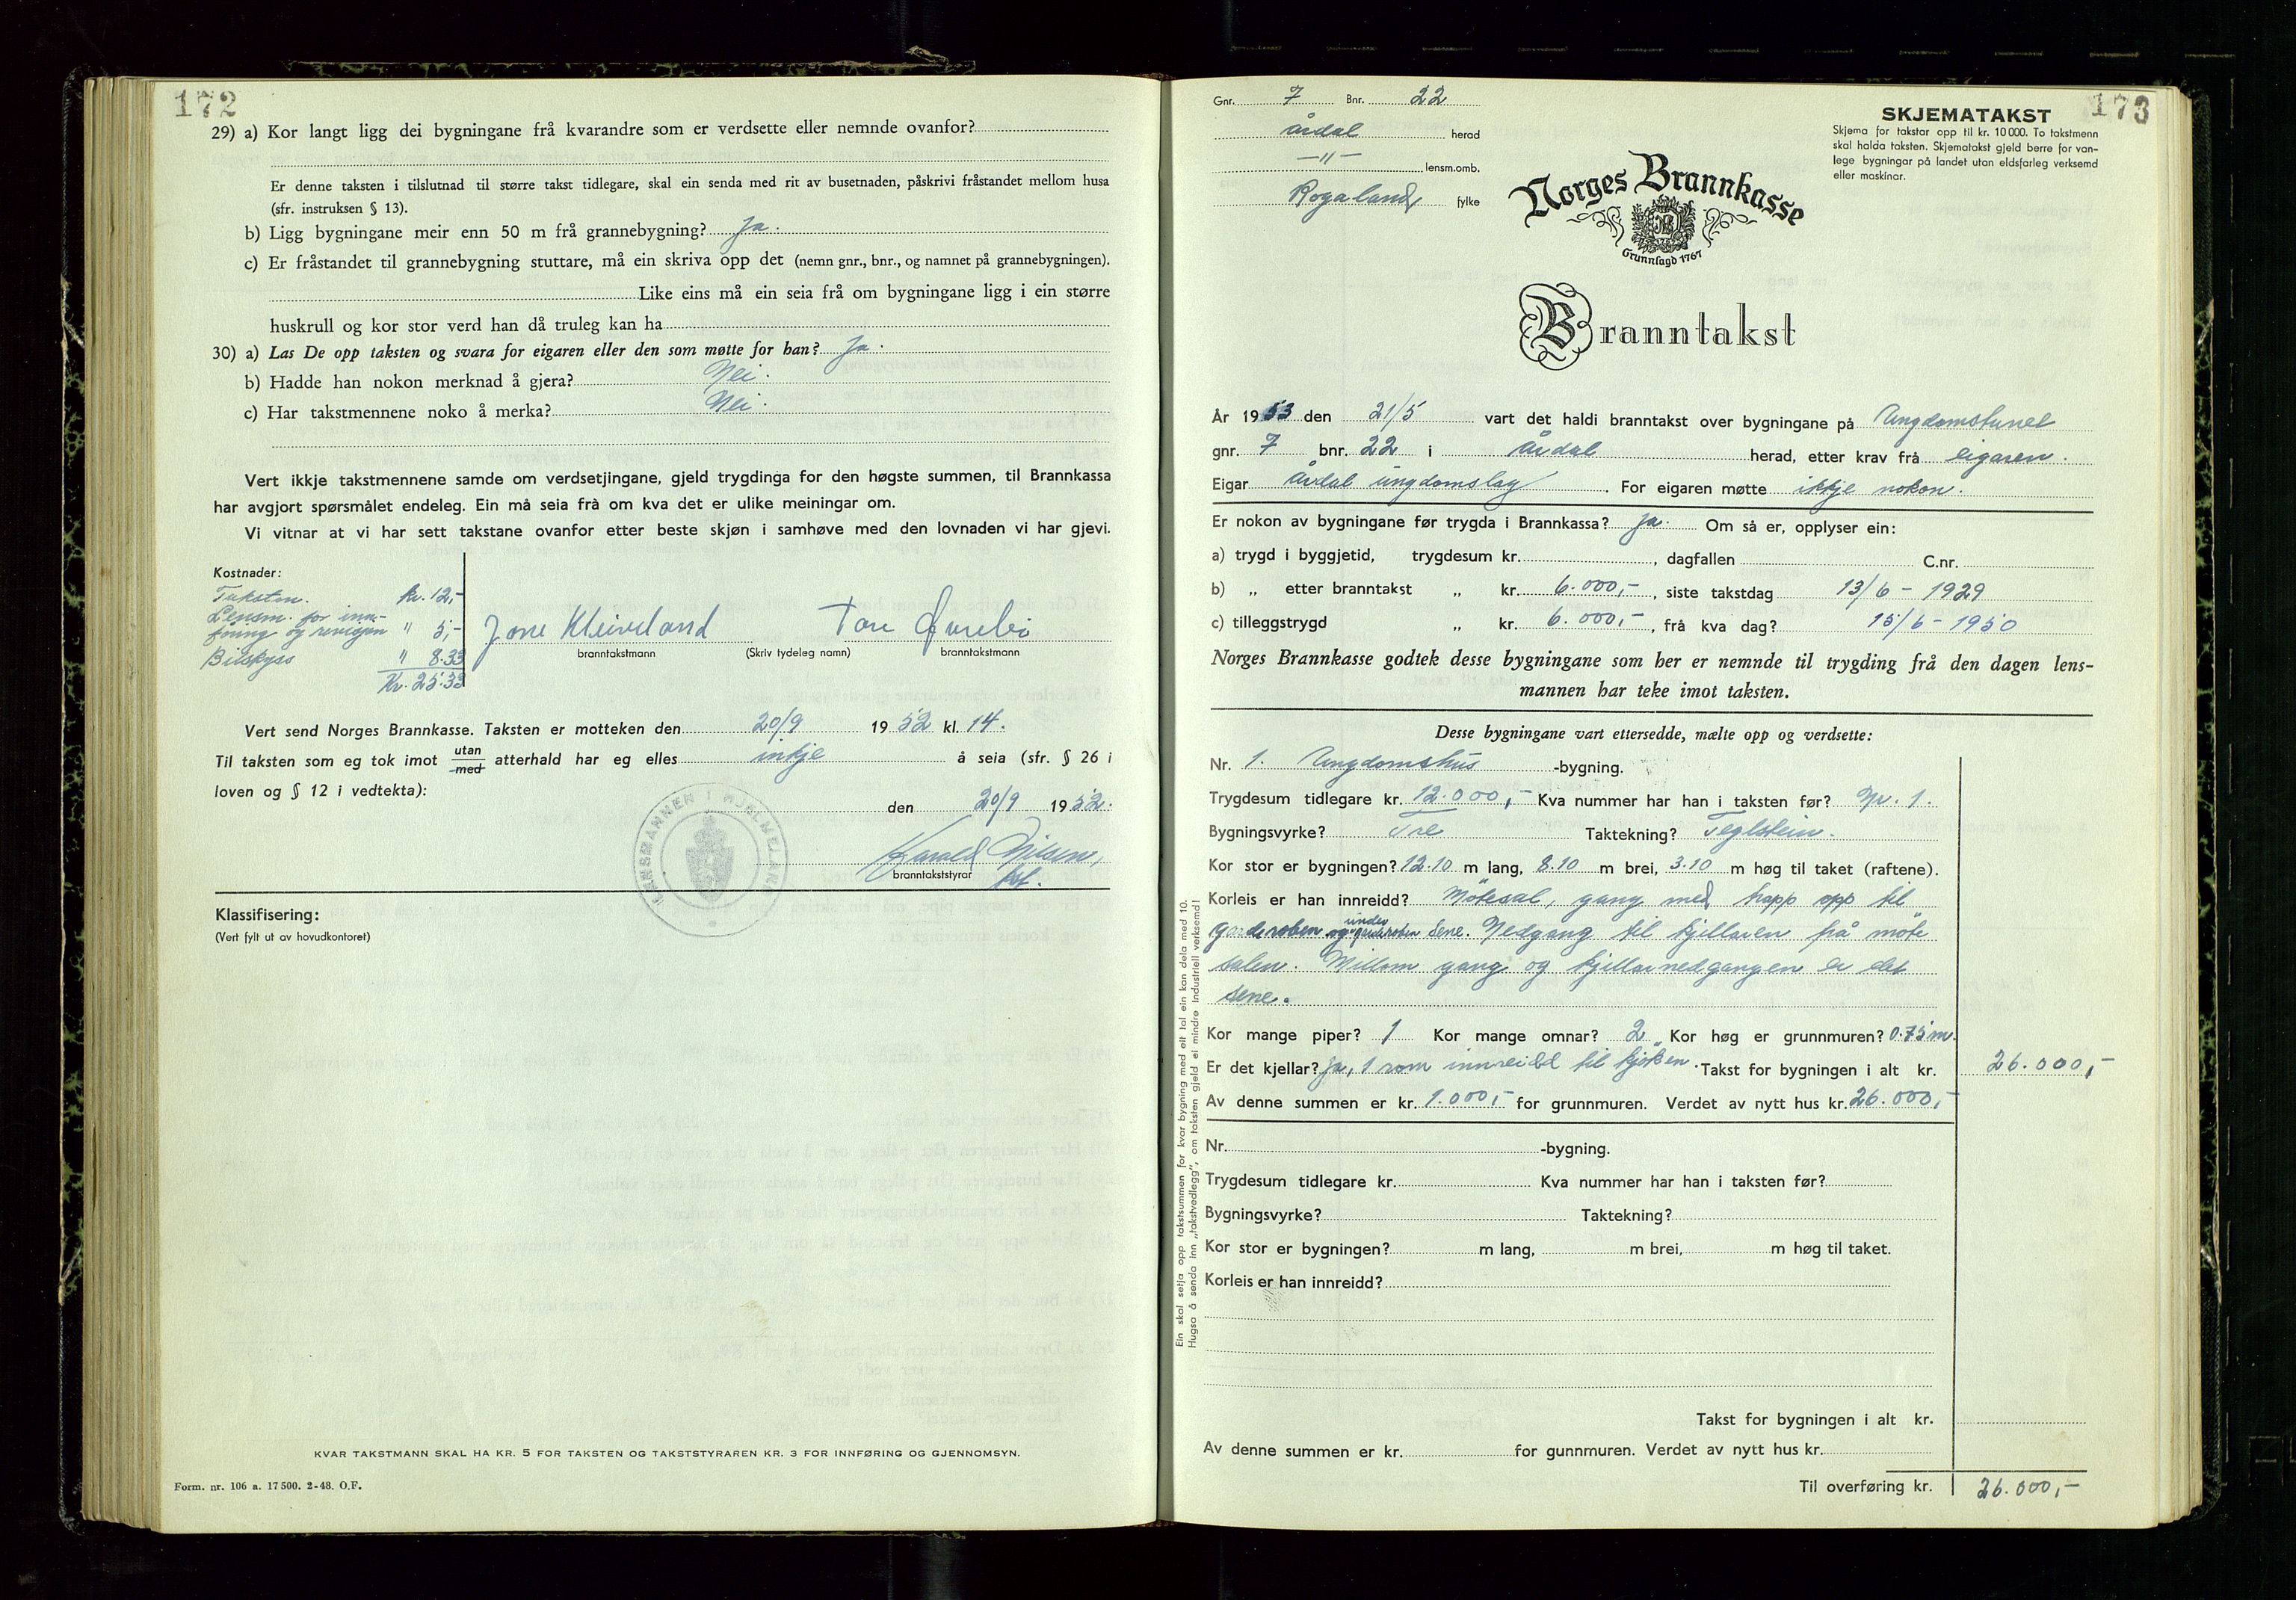 172
29) a) Kor langt ligg dei bygningane frå kvarandre som er verdsette eller nemnde ovanfor?
Er denne taksten i tilslutnad til større takst tidlegare, skal ein senda med rit av busetnaden, påskrivi fråstandet mellom husa
(sfr. instruksen § 13).
b) Ligg bygningane meir enn 50 m frå grannebygning? Ja.
c) Er fråstandet til grannebygning stuttare, må ein skriva opp det (nemn gnr., bnr., og namnet på grannebygningen).
Like eins må ein seia frå om bygningane ligg i ein større
huskrull og kor stor verd han då truleg kan ha
30) a) Las De opp taksten og svara for eigaren eller den som møtte for han? Ja.
b) Hadde han nokon merknad å gjera? Nei.
c) Har takstmennene noko å merka? Nei.
Vert ikkje takstmennene samde om verdsetjingane, gjeld trygdinga for den høgste summen, til Brannkassa
har avgjort spørsmålet endeleg. Ein må seia frà om kva det er ulike meiningar om.
Vi vitnar at vi har sett takstane ovanfor etter beste skjøn i samhøve med den lovnaden vi har gjevi.
Kostnader:
Taksten. kr. 12,-
Lensm. for inn-
føring og revisjon " 5,-
Bilskyss " 8.33
Kr. 25.33
Jone Kleiveland Tore
branntakstmann (Skriv tydeleg namn) branntakstmann
Vert send Norges Brannkasse. Taksten er motteken den 20/9 1952 kl. 14.
Til taksten som eg tok imot utan med atterhald har eg elles inkje å seia (sfr. § 26 i
loven og § 12 i vedtekta):
den 20/9 1952.
LENSMANNEN I HJELMELAND
Harald Nilsen,
branntakststyrar
Klassifisering:
(Vert fylt ut av hovudkontoret)
KVAR TAKSTMANN SKAL HA KR. 5 FOR TAKSTEN OG TAKSTSTYRAREN KR. 3 FOR INNFØRING OG GJENNOMSYN.
Form. nr. 106 a. 17 500. 2-48. O.F.
173
Gnr. 7 Bnr. 22
Årdal herad
-"- lensm.omb.
Rogaland fylke
SKJEMATAKST
Skjema for takstar opp til kr. 10 000. To takstmenn
skal halda taksten. Skjematakst gjeld berre for van-
lege bygningar på landet utan eldsfarleg verksemd
eller maskinar.
Norges Brannkasse
Grunnlagd 1767
Branntakst
År 1953 den 21/5 vart det haldi branntakst over bygningane på Ungdomstunet
gnr. 7 bnr. 22 i Årdal herad, etter krav frå eigaren.
Eigar Årdal ungdomslag. For eigaren møtte ikkje nokon.
Er nokon av bygningane før trygda i Brannkassa? Ja. Om så er, opplyser ein:
a) trygd i byggjetid, trygdesum kr. , dagfallen C.nr.
b) „ etter branntakst „ kr. 6.000,- , siste takstdag 13/6 - 1929
c) tilleggstrygd „ kr. 6.000,- , frå kva dag? 15/6 - 1950
Norges Brannkasse godtek desse bygningane som her er nemnde til trygding frå den dagen lens-
mannen har teke imot taksten.
Desse bygningane vart ettersedde, mælte opp og verdsette:
Nr. 1. Ungdomshus -bygning.
Trygdesum tidlegare kr. 12.000,- Kva nummer har han i taksten før? Nr. 1.
Bygningsvyrke? Tre Taktekning? Teglstein.
Kor stor er bygningen? 12.10 m lang, 8.10 m brei, 3.10 m høg til taket (raftene).
Korleis er han innreidd? Mötesal, gang med trapp opp til
garderoben og under garderoben sene. Nedgang til kjellaren frå möte
salen. Millom gang og kjellarnedgangen er det
sene.
Kor mange piper? 1 Kor mange omnar? 2 Kor høg er grunnmuren? 0.75 m.
Er det kjellar? Ja, 1 rom innreidd til kjöken. Takst for bygningen i alt kr. 26.000,-
Av denne summen er kr. 1.000,- for grunnmuren. Verdet av nytt hus kr. 26.000,-
Nr. -bygning.
Trygdesum tidlegare kr. Kva nummer har han i taksten før?
Bygningsvyrke? Taktekning?
Kor stor er bygningen? m lang, m brei, m høg til taket.
Korleis er han innreidd?
Takst for bygningen i alt kr.
Av denne summen er kr. for gunnmuren. Verdet av nytt hus kr.
Til overføring kr. 26.000,-
Ein skal setja opp takstsummen for kvar bygning med eit tal ein kan dela med 10.
Hugsa å senda inn „takstvedlegg", om taksten gjeld ei mindre industriell verksemd!